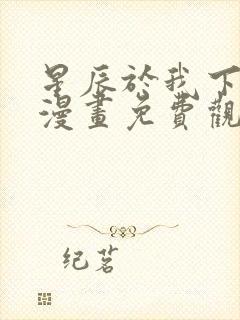 星辰於我下
漫畫免費觀
纪茗